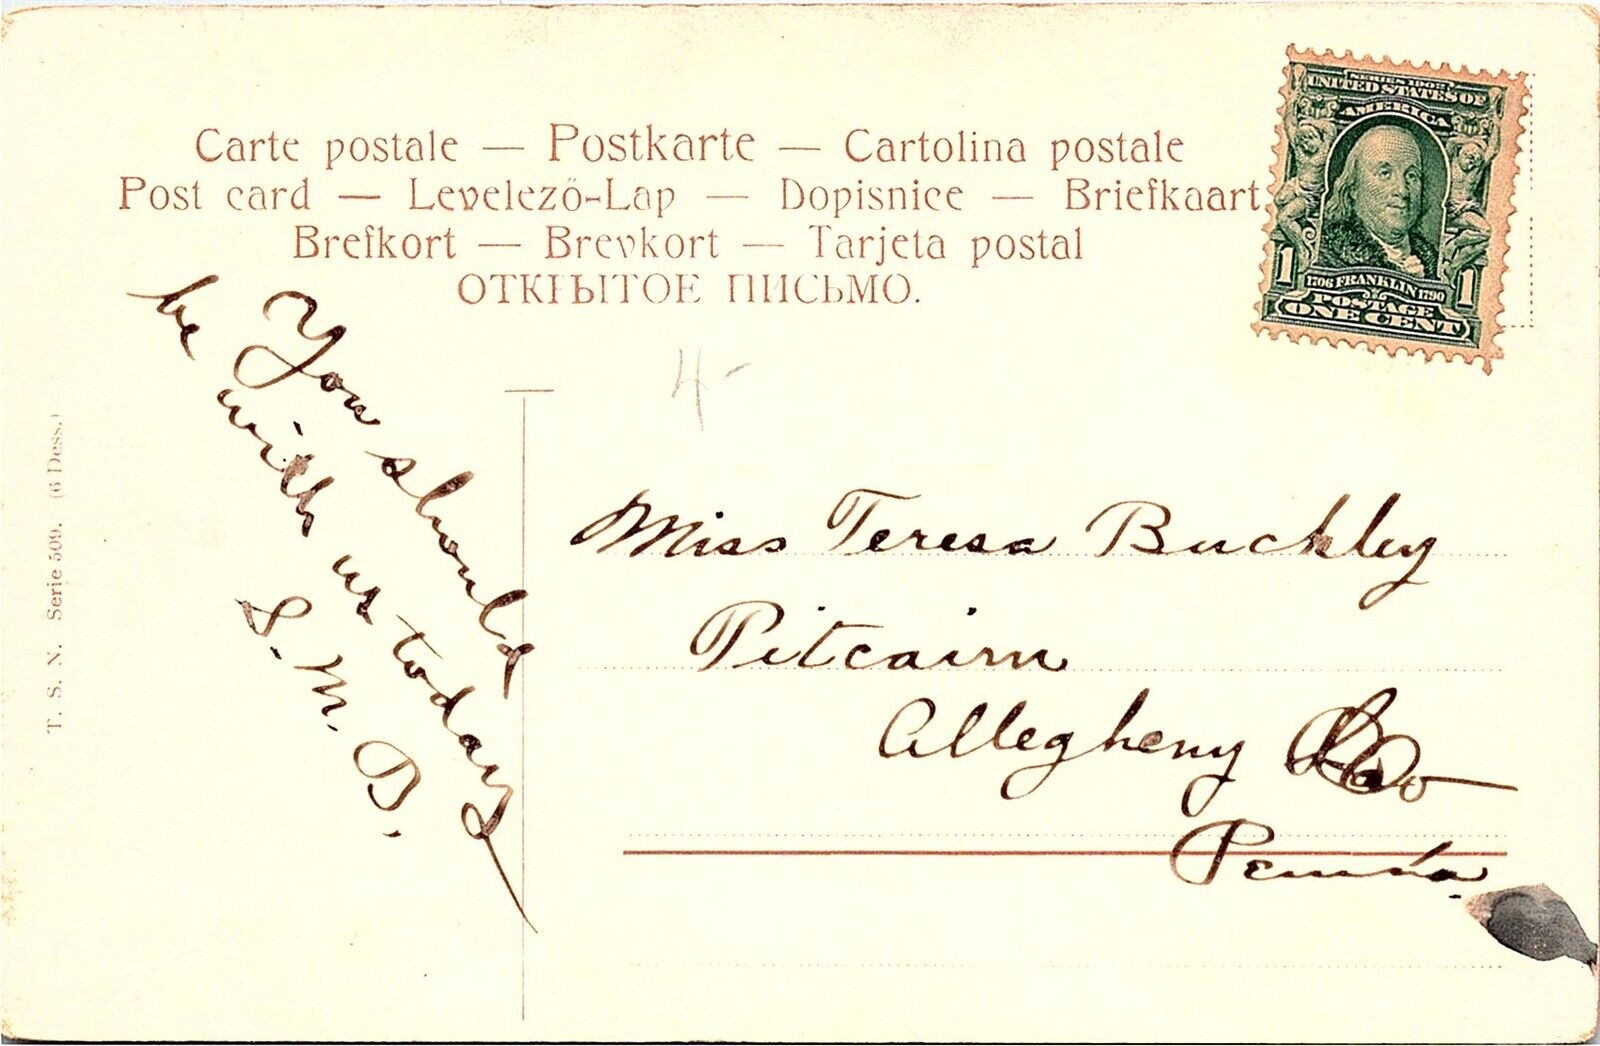 Carte postale — Postkarte — Cartolina postale
Post card — Levelező-Lap — Dopisnice — Briefkaart
Brefkort — Brevkort — Tarjeta postal
ОТКРЫТОЕ ПИСЬМО.
SERIES 1902
UNITED STATES OF
AMERICA
1706 FRANKLIN 1790
1 1
POSTAGE
ONE CENT
4-
You should
be with us today
S. M. D.
T. S. N. Serie 509. (6 Dess.)
Miss Teresa Buckley
Pitcairn
Allegheny Co
Penn'a.